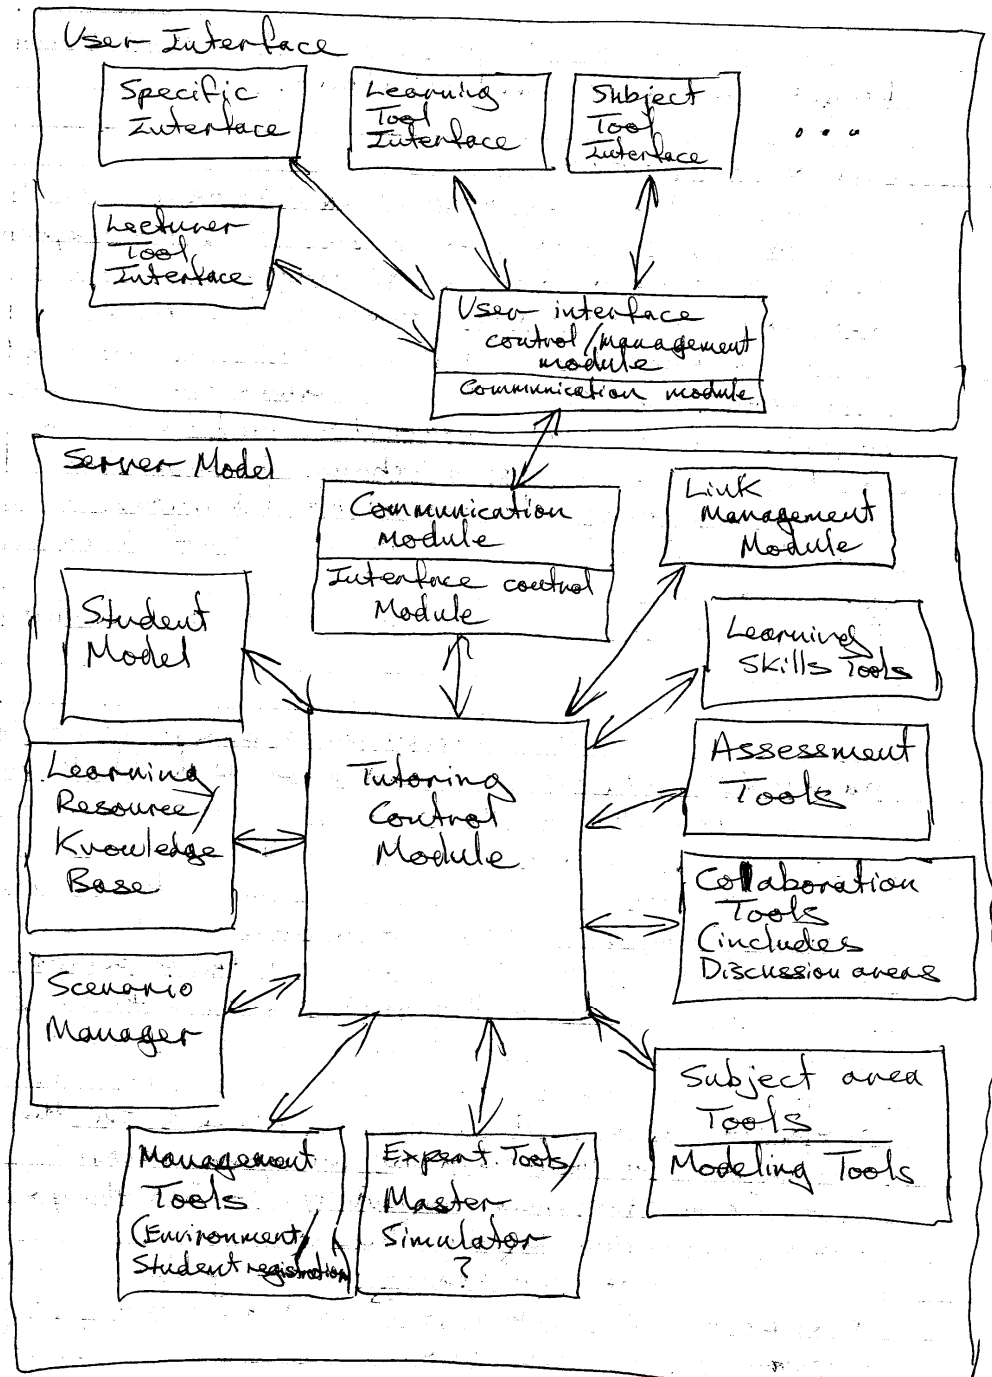 User Interface
Specific
Interface
Learning
Tool
Interface
Subject
Tool
Interface
...
Lecturer
Tool
Interface
User interface
control/management
module
Communication module
Server Model
Communication
Module
Interface control
Module
Link
Management
Module
Student
Model
Learning
Skills Tools
Tutoring
Control
Module
Assessment
Tools
Learning
Resource/
Knowledge
Base
Collaboration
Tools
(includes
Discussion areas
Scenario
Manager
Subject area
Tools
Modeling Tools
Management
Tools
(Environment/
Student registration)
Expert Tools/
Master
Simulator
?